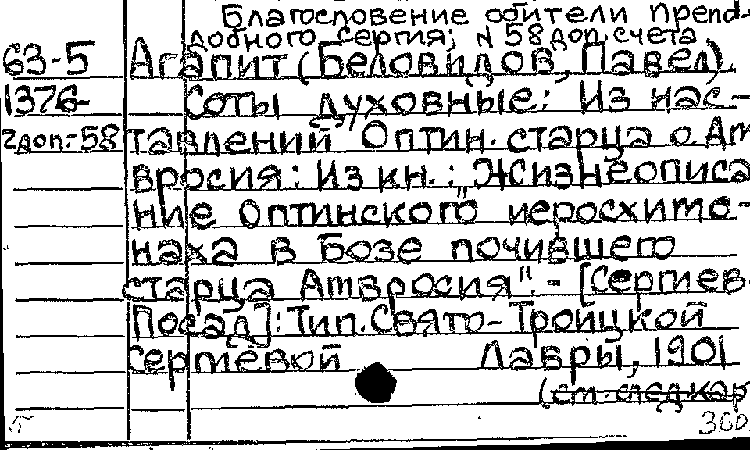 Благословение обители препо-
добного Сергия; N 58 доп. счета
63-5 Агапит (Беловидов, Павел).
1376- Соты духовные: Из нас-
2 доп.-58 тавлений Оптин. старца о. Ам
вросия: Из кн.: "Жизнеописа
ние Оптинского иеросхимо-
наха в Бозе почившего
старца Амвросия". - [Сергиев.
Посад]: Тип. Свято-Троицкой
Сергиевой Лавры, 1901
(см. след кар
360